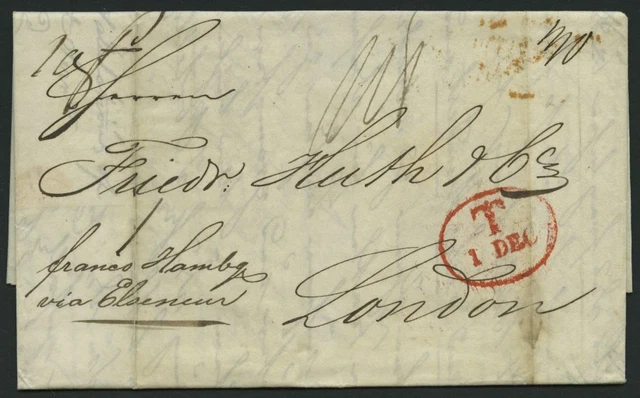 Herren
Friedr. Huth & Co
T
1 DEC
franco Hambg
via Elseneur
London